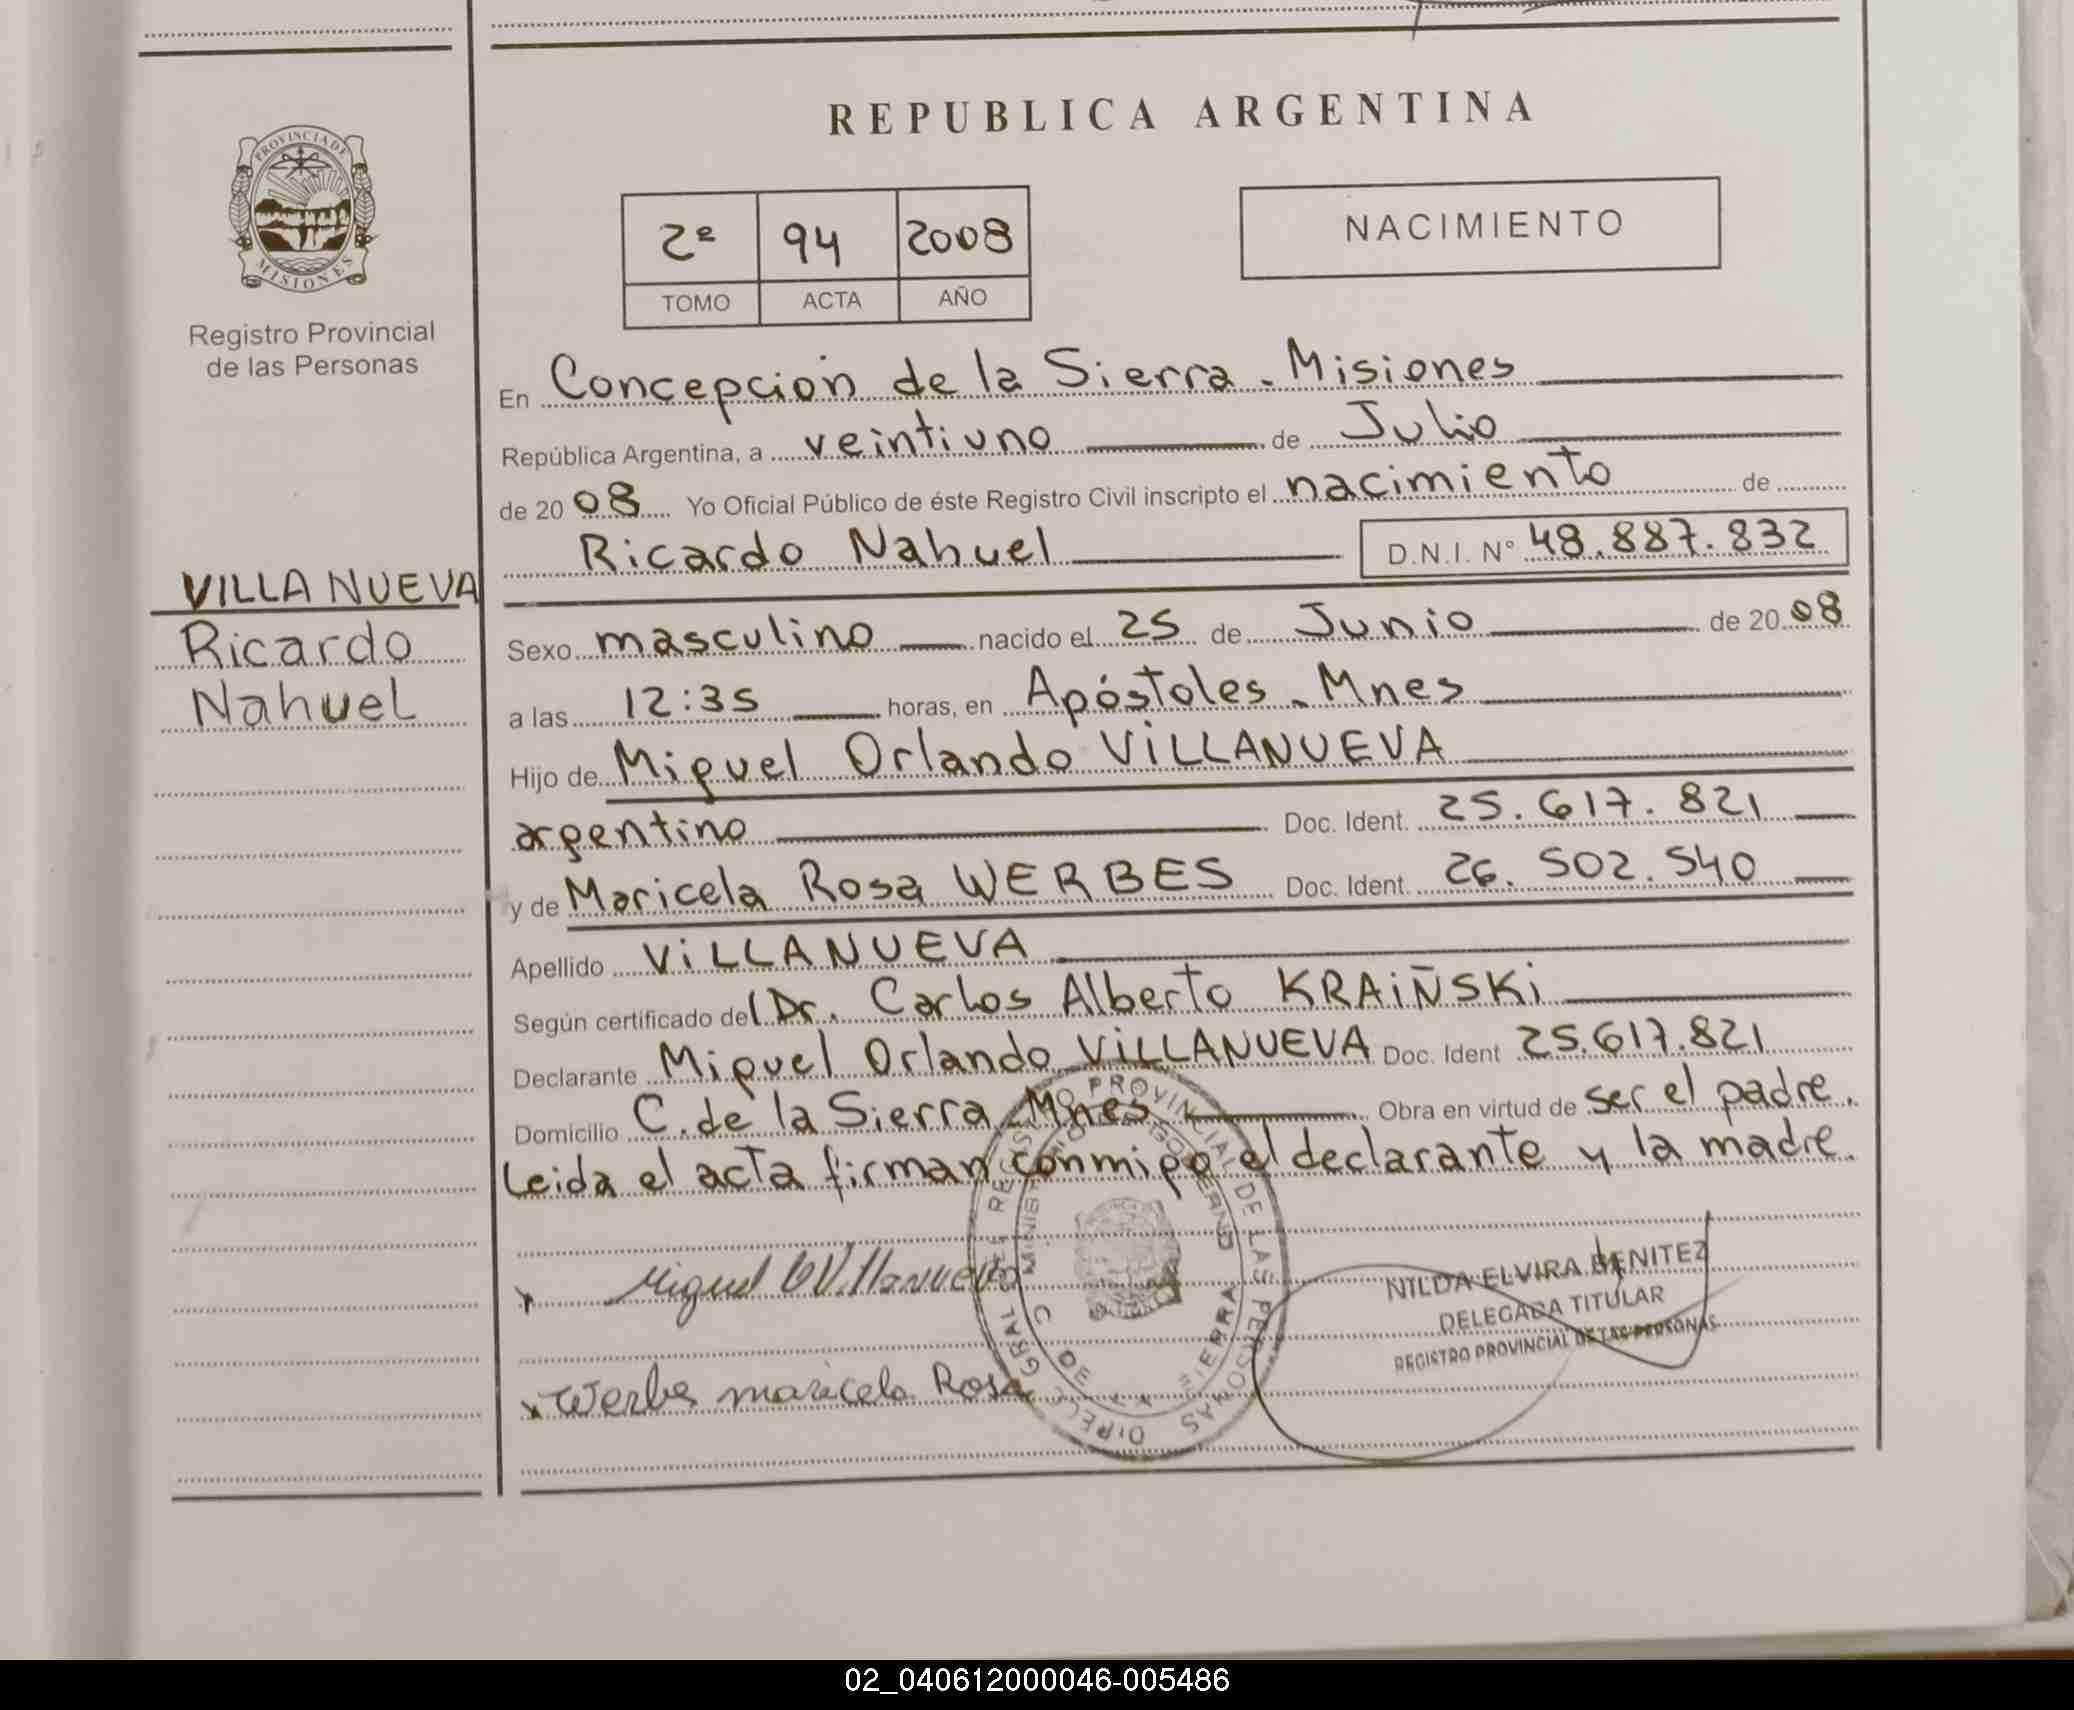 REPUBLICA ARGENTINA
PROVINCIA DE
MISIONES
Registro Provincial
de las Personas
2º 94 2008
TOMO ACTA AÑO
NACIMIENTO
En Concepcion de la Sierra - Misiones
República Argentina, a veintiuno de Julio
de 20 08 Yo Oficial Público de éste Registro Civil inscripto el nacimiento de
Ricardo Nahuel D.N.I. Nº 48.887.832
VILLANUEVA
Ricardo
Nahuel
Sexo masculino nacido el 25 de Junio de 20 08
a las 12:35 horas, en Apóstoles - Mnes
Hijo de Miguel Orlando VILLANUEVA
argentino Doc. Ident. 25.617.821
y de Maricela Rosa WERBES Doc. Ident. 26.502.540
Apellido VILLANUEVA
Según certificado del Dr. Carlos Alberto KRAIÑSKI
Declarante Miguel Orlando VILLANUEVA Doc. Ident 25.617.821
Domicilio C. de la Sierra - Mnes Obra en virtud de ser el padre.
Leida el acta firman conmigo el declarante y la madre.
x Miguel O Villanueva
x Werbes maricela Rosa
NILDA ELVIRA BENITEZ
DELEGADA TITULAR
REGISTRO PROVINCIAL DE LAS PERSONAS
REGISTRO PROVINCIAL DE LAS PERSONAS
SIERRA
02_040612000046-005486